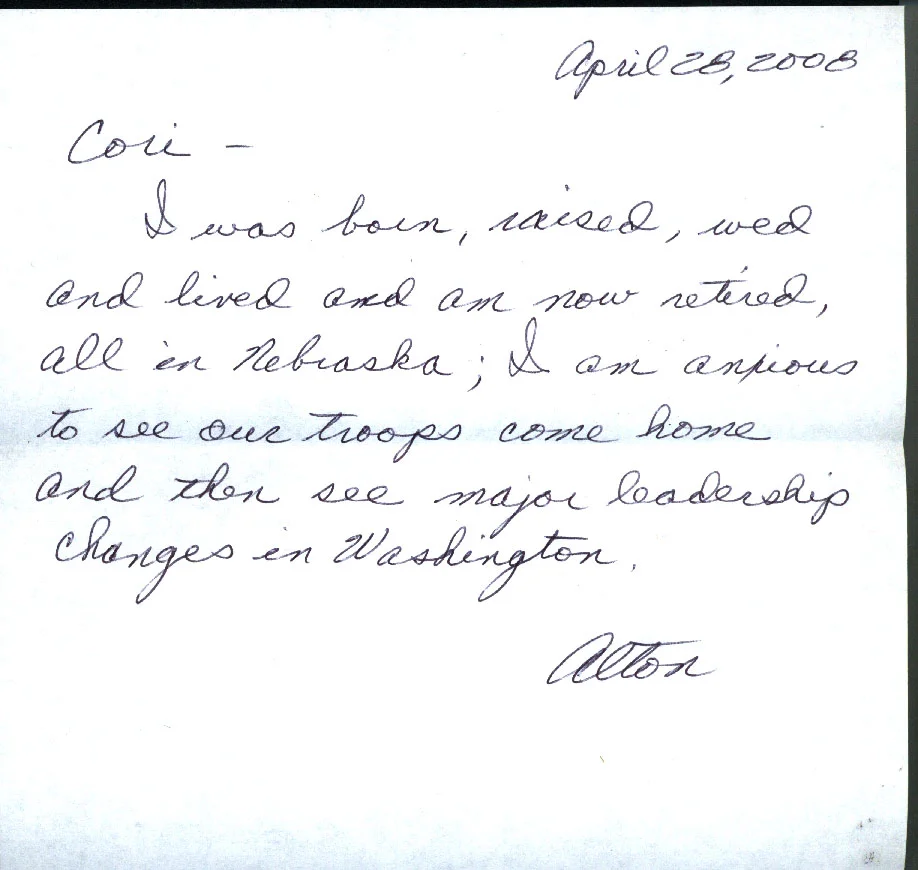 April 28, 2008
Cori -
I was born, raised, wed
and lived and am now retired,
all in Nebraska; I am anxious
to see our troops come home
and then see major leadership
changes in Washington.
Alton